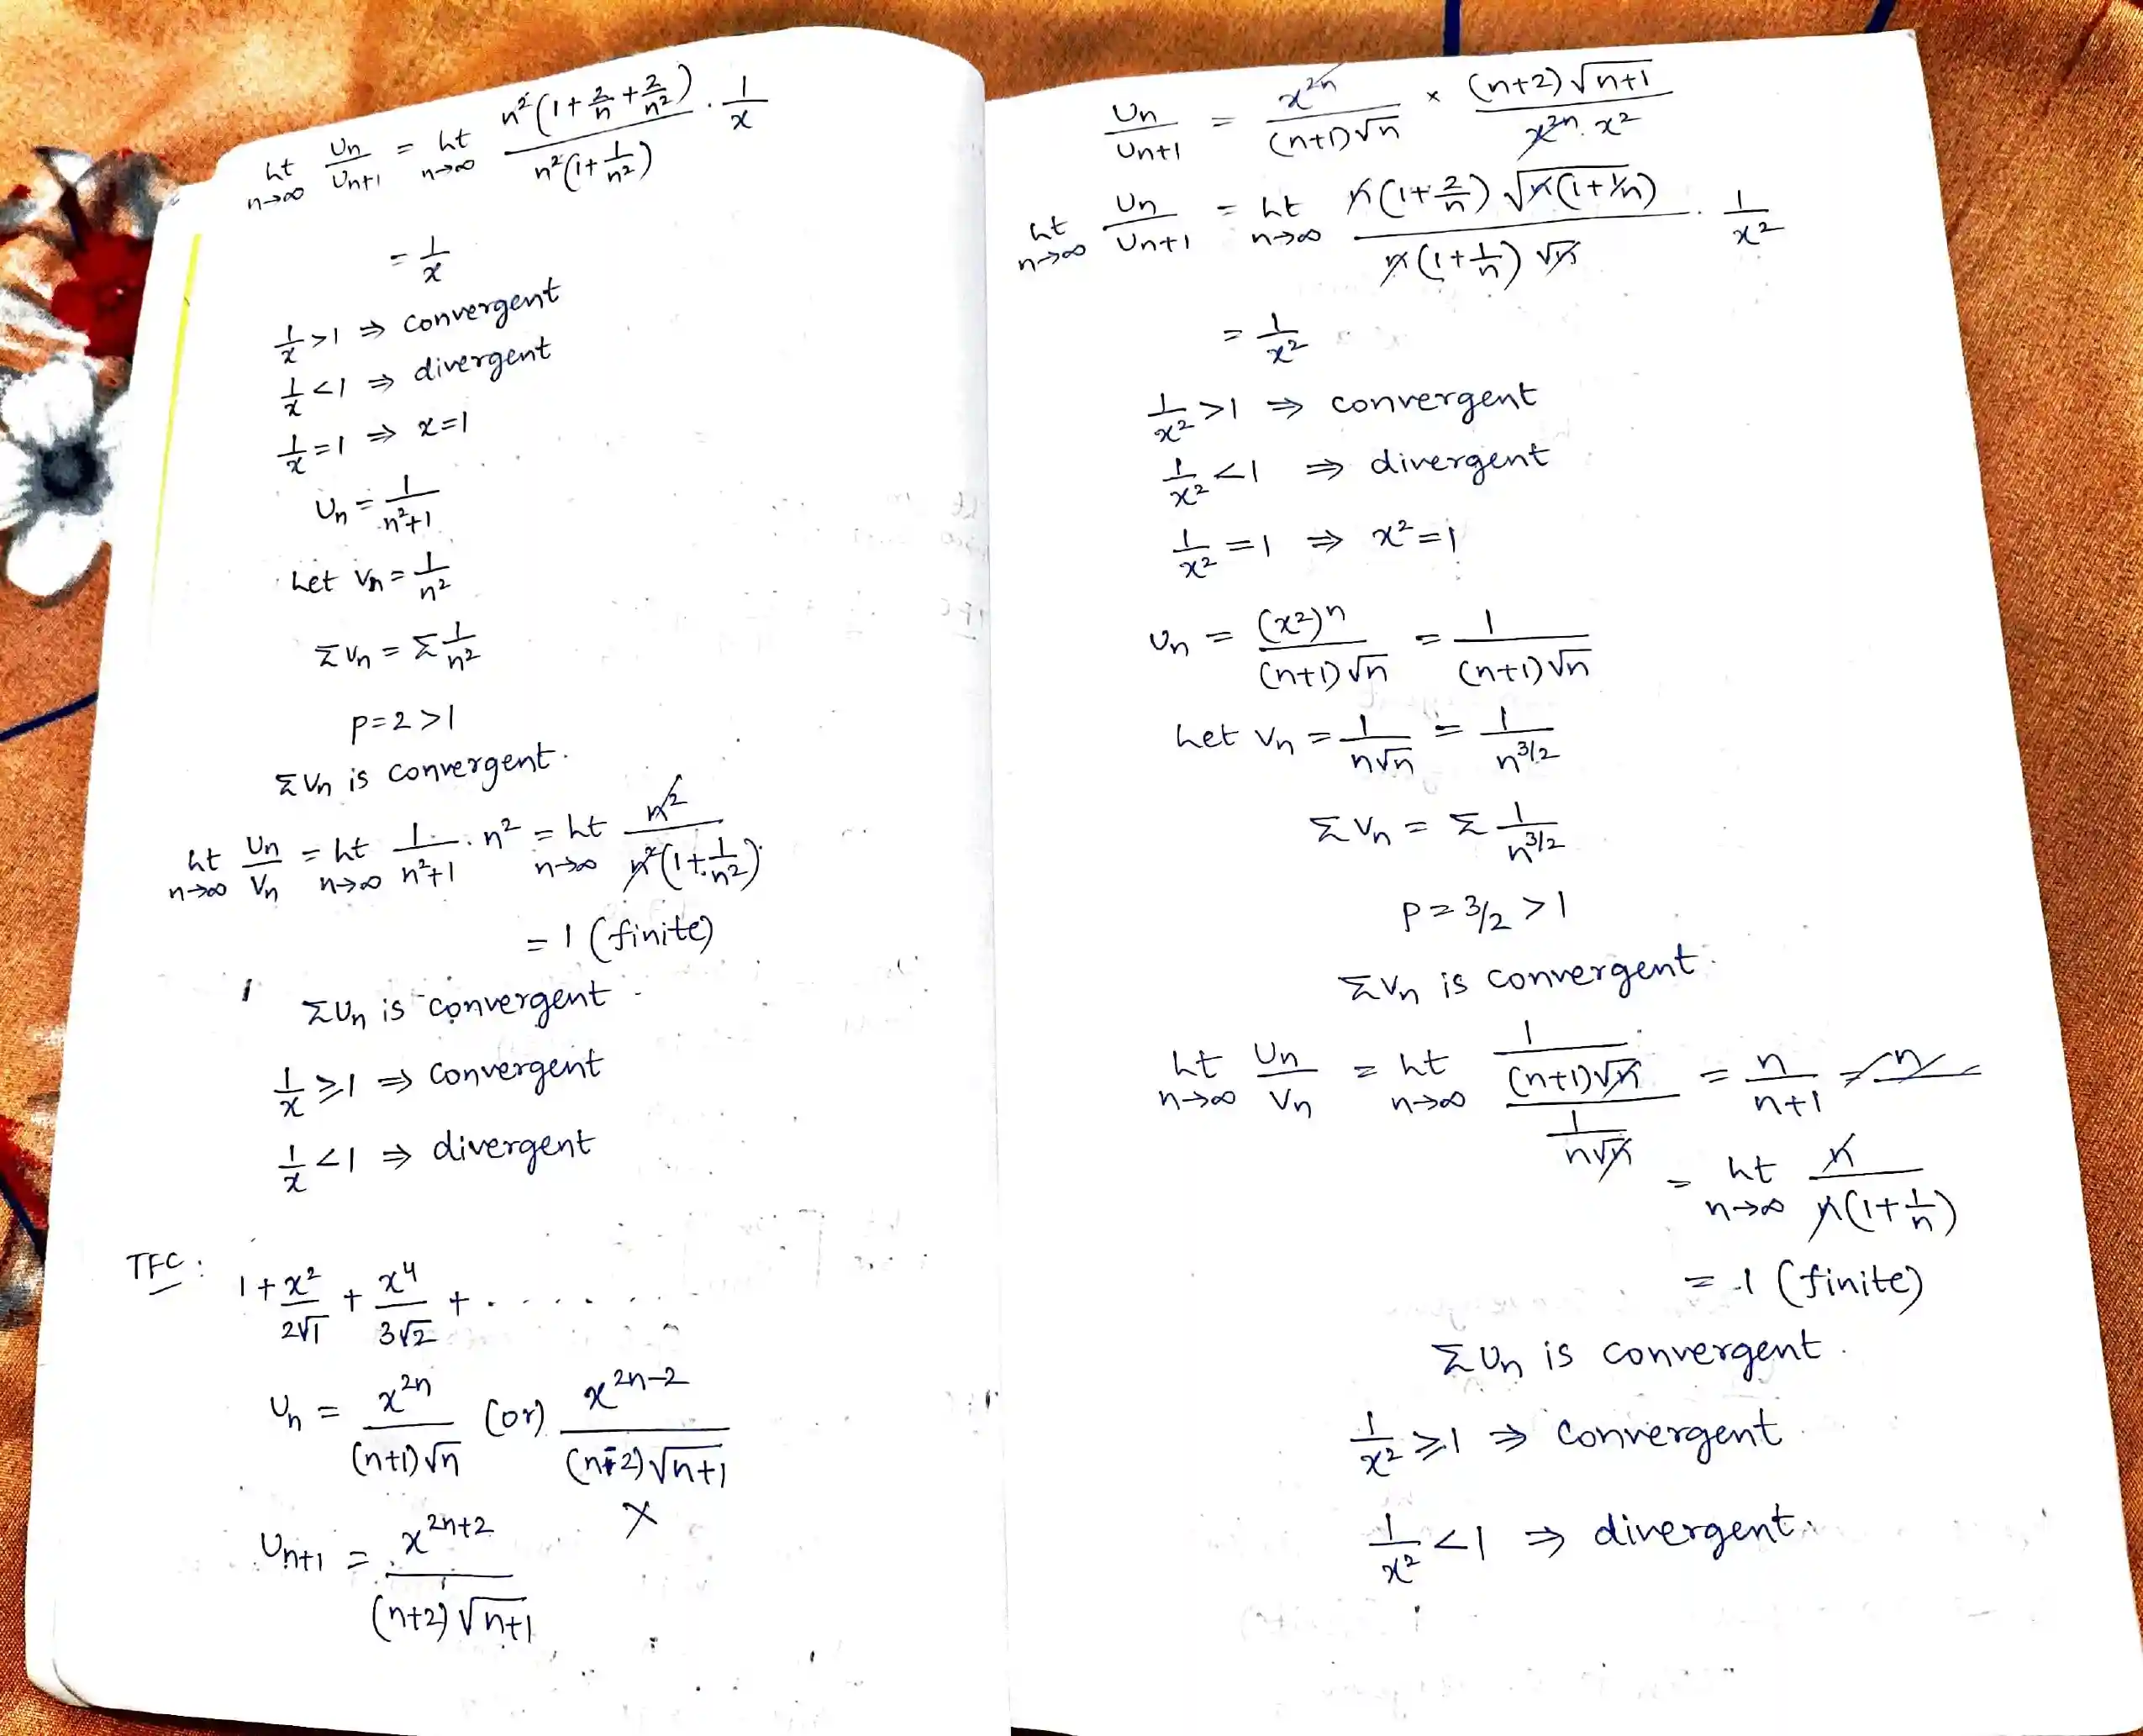 Lt n→∞ Un/Un+1 = Lt n→∞ n²(1+2/n+2/n²)/n²(1+1/n²) · 1/x
= 1/x
1/x >1 ⇒ convergent
1/x <1 ⇒ divergent
1/x =1 ⇒ x=1
Un = 1/n²+1
Let Vn = 1/n²
ΣVn = Σ 1/n²
p=2>1
ΣVn is convergent.
Lt n→∞ Un/Vn = Lt n→∞ 1/n²+1 · n² = Lt n→∞ n²/n²(1+1/n²)
= 1 (finite)
ΣUn is convergent.
1/x ≥1 ⇒ convergent
1/x <1 ⇒ divergent
TFC: 1 + x²/2√1 + x⁴/3√2 + . . . . . . .
Un = x^2n/(n+1)√n (or) x^2n-2/(n+2)√n+1
×
Un+1 = x^2n+2/(n+2)√n+1
Un/Un+1 = x^2n/(n+1)√n × (n+2)√n+1/x^2n.x²
Lt n→∞ Un/Un+1 = Lt n→∞ n(1+2/n)√n(1+1/n)/n(1+1/n)√n · 1/x²
= 1/x²
1/x² >1 ⇒ convergent
1/x² <1 ⇒ divergent
1/x² =1 ⇒ x²=1
Un = (x²)^n/(n+1)√n = 1/(n+1)√n
Let Vn = 1/n√n = 1/n^3/2
ΣVn = Σ 1/n^3/2
p=3/2 >1
ΣVn is convergent.
Lt n→∞ Un/Vn = Lt n→∞ 1/(n+1)√n / 1/n√n = n/n+1 = n
= Lt n→∞ n/n(1+1/n)
= 1 (finite)
ΣUn is convergent.
1/x² ≥1 ⇒ convergent
1/x² <1 ⇒ divergent.